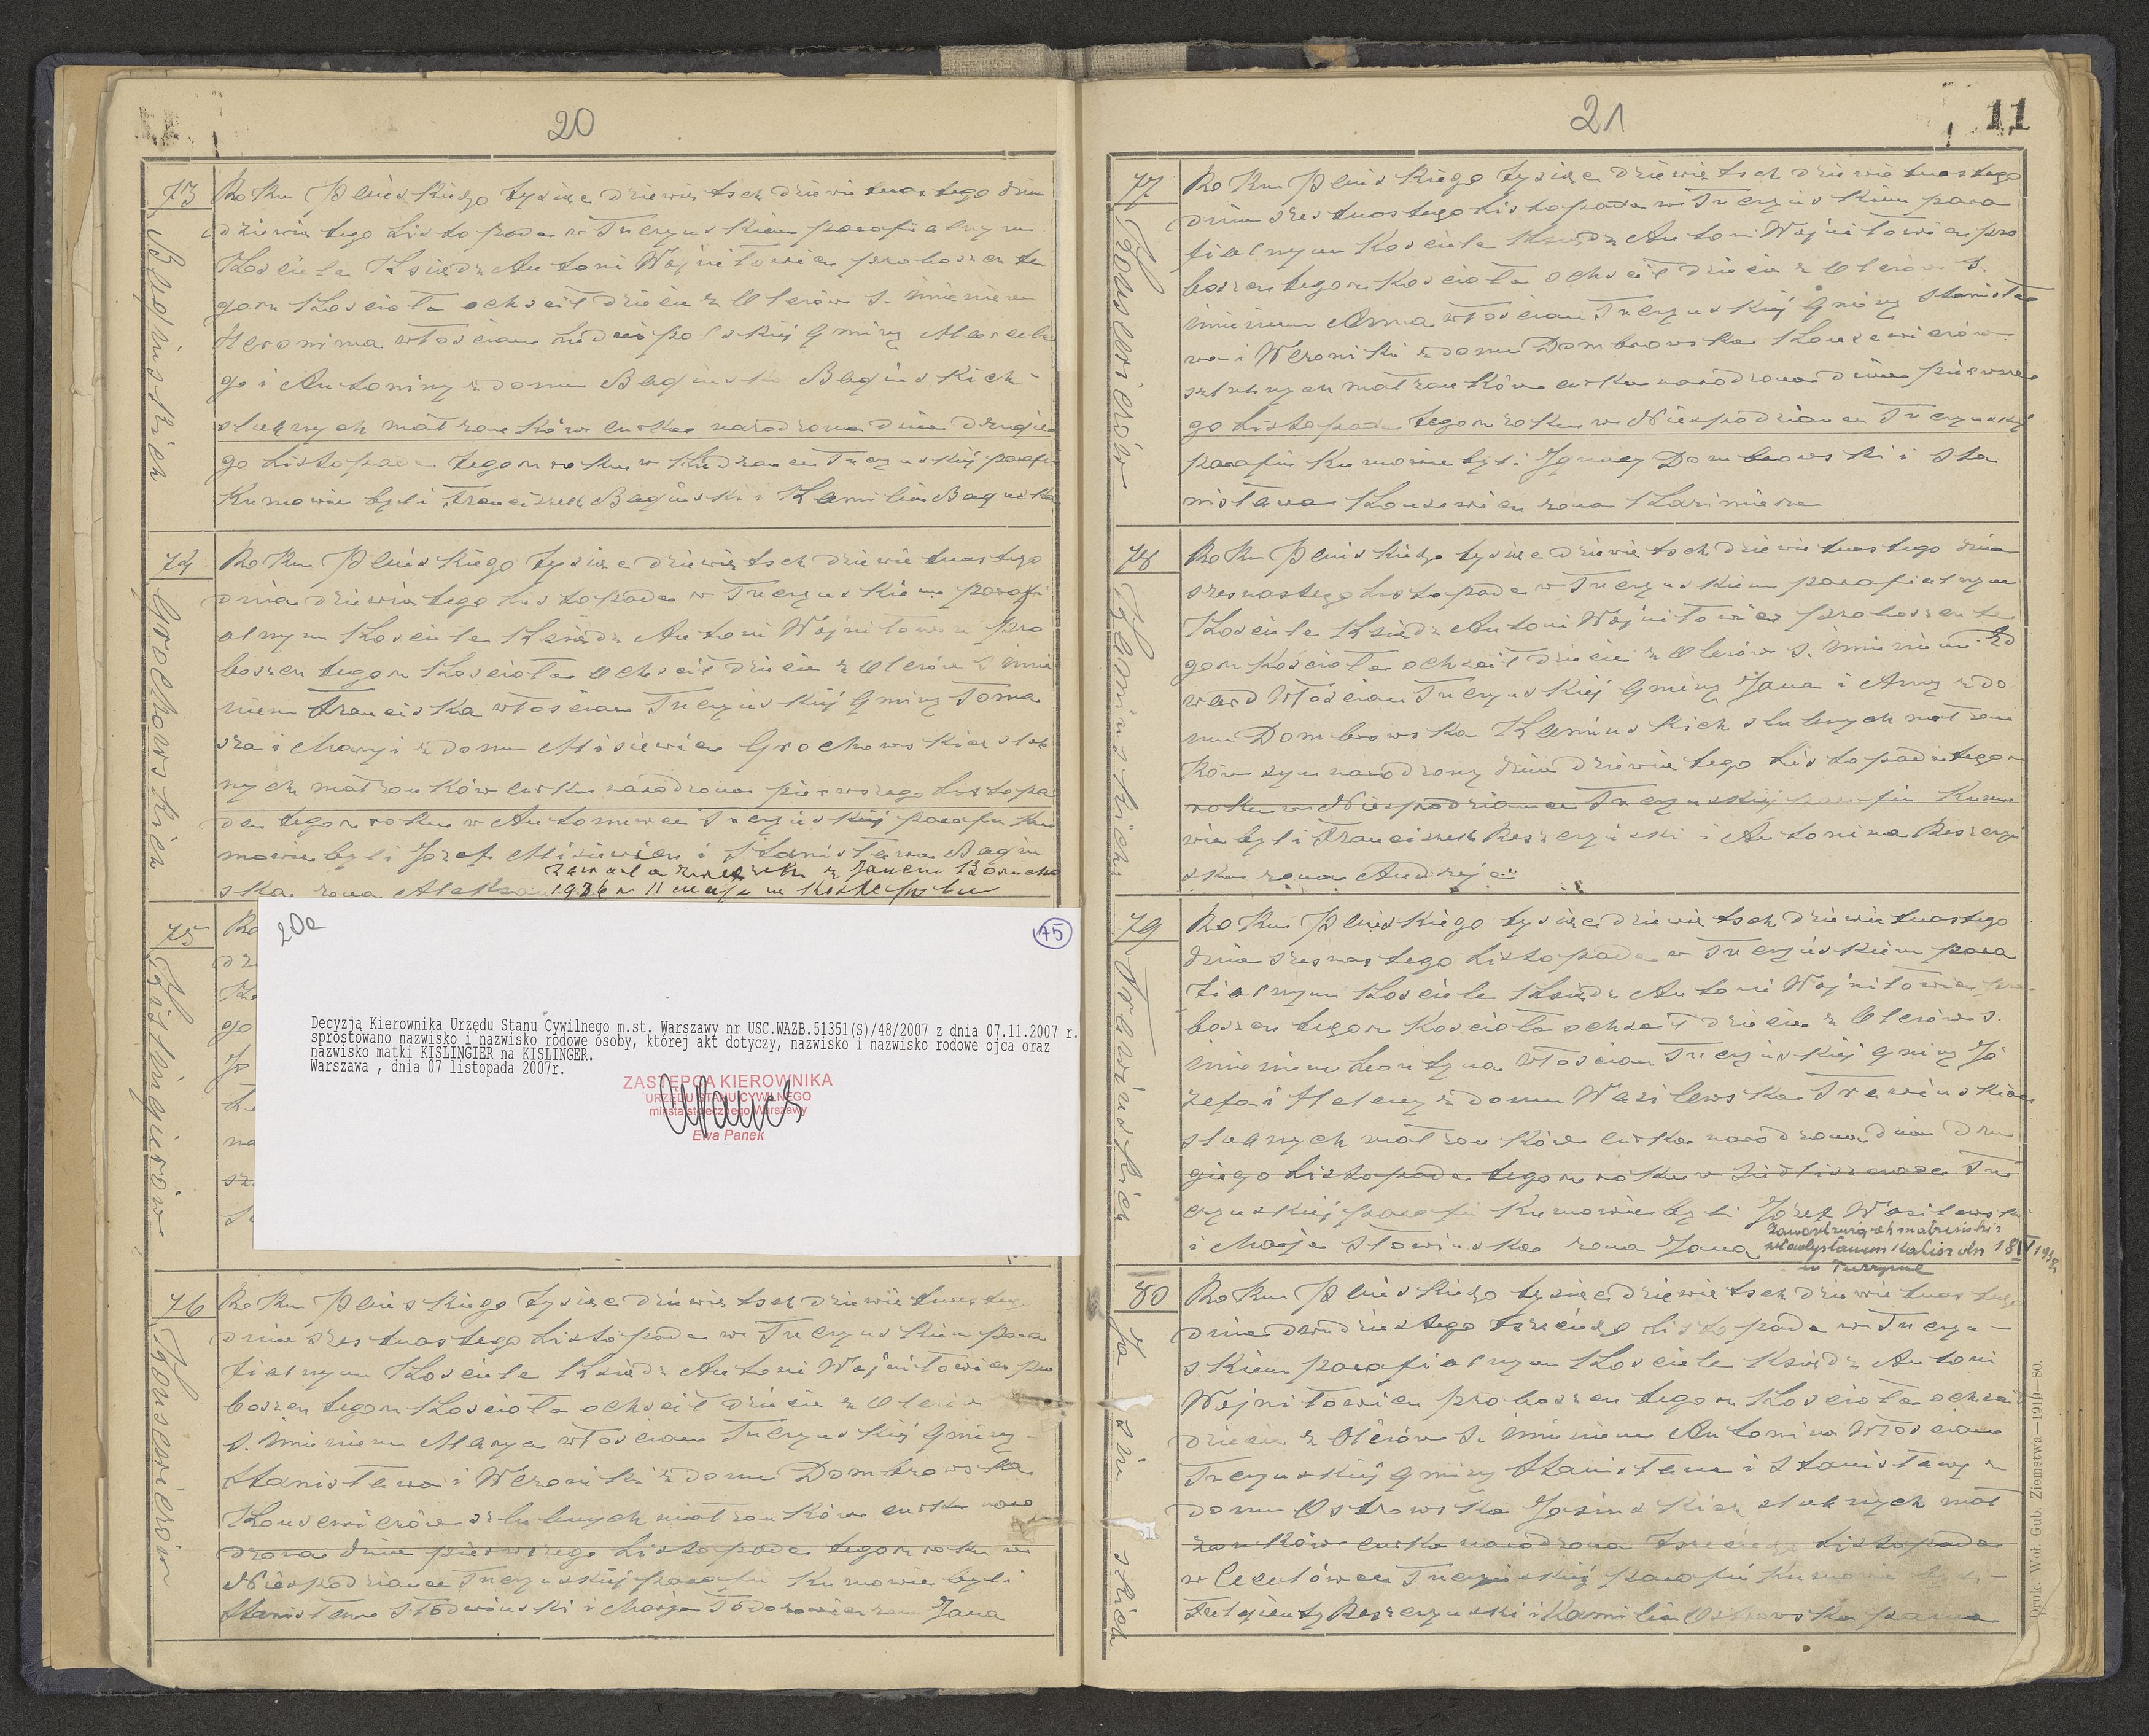 20
73
Bagińskich
Roku Pańskiego tysiąc dziewięćset dziewiętnastego dnia
dziewiątego Listopada w Tuczyńskiem parafialnym
Kościele Ksiądz Antoni Wojniłowicz proboszcz te
goż Kościoła ochrcił dziecie z Olerów S. imieniem
Heronima włościan Ludwipolskiej Gminy Marcele
go i Antoniny z domu Bagińska Bagińskich
ślubnych małżonków curka narodzona dnia drugie
go Listopada tegoż roku w Tuczyńskiej parafii
Kumowie byli Franciszek Bagiński i Kamilia Bagińska
74
Grochowskich
Roku Pańskiego tysiąc dziewięćset dziewiętnastego
dnia dziewiątego Listopada w Tuczyńskiem parafi
alnym Kościele Ksiądz Antoni Wojniłowicz pro
boszcz tegoż Kościoła ochrcił dziecie z Olerów S. imie
niem Franciska włościan Tuczyńskiej Gminy Toma
sza i Maryi z domu Misiewicz Grochowskich ślub
nych małżonków curka narodzona pierwszego Listopa
da tegoż roku w Antonówce Tuczyńskiej parafii Ku
mowie byli Józef Misiewicz i Stanisława Bagiń
ska żona
Zawarła związek z Janem
1936 r 11 maja w
75
Kislingierów
20a
75
Decyzją Kierownika Urzędu Stanu Cywilnego m.st. Warszawy nr USC.WAZB.51351(S)/48/2007 z dnia 07.11.2007 r.
sprostowano nazwisko i nazwisko rodowe osoby, której akt dotyczy, nazwisko i nazwisko rodowe ojca oraz
nazwisko matki KISLINGIER na KISLINGER.
Warszawa , dnia 07 listopada 2007r.
ZASTĘPCA KIEROWNIKA
URZĘDU STANU CYWILNEGO
miasta stołecznego Warszawy
Ewa Panek
76
Konsewiczów
Roku Pańskiego tysiąc dziewięćset dziewiętnastego
dnia szestnastego Listopada w Tuczyńskiem para
fialnym Kościele Ksiądz Antoni Wojniłowicz pro
boszcz tegoż Kościoła ochrcił dziecie z Olerów
S. imieniem Marya włościan Tuczyńskiej Gminy
Stanisława i Weroniki z domu Dombrowska
Konsewiczów szlubnych małżonków curka naro
dzona dnia pierwszego Listopada tegoż roku w
Niespodziance Tuczyńskiej parafii Kumowie byli
Stanisław i Marja żona Jana
21
11
77
Konsewiczów
Roku Pańskiego tysiąc dziewięćset dziewiętnastego
dnia szestnastego Listopada w Tuczyńskiem para
fialnym Kościele Ksiądz Antoni Wojniłowicz pro
boszcz tegoż Kościoła ochrcił dziecie z Olerów S.
imieniem Anna włościan Tuczyńskiej Gminy Stanisła
wa i Weroniki z domu Dombrowska Konsewiczów
szlubnych małżonków curka narodzona dnia pierwsze
go Listopada tegoż roku w Niespodziance Tuczyńskiej
parafii Kumowie byli Ignacy Dombrowski i Sta
nisława Konsewicz żona Kazimierza
78
Kamińskich
Roku Pańskiego tysiąc dziewięćset dziewiętnastego dnia
szesnastego Listopada w Tuczyńskiem parafialnym
Kościele Ksiądz Antoni Wojniłowicz proboszcz te
goż Kościoła ochrcił dziecie z Olerów S. imieniem Ed
ward włościan Tuczyńskiej Gminy Jana i Anny z do
mu Dombrowska Kamińskich ślubnych małżon
ków syn narodzony dnia dziewiątego Listopada tegoż
roku w Niespodziance Tuczyńskiej parafii Kumo
wie byli Franciszek Reszczyński i Antonina Reszczyń
ska żona Andrzeja
79
Trawińskich
Roku Pańskiego tysiąc dziewięćset dziewiętnastego
dnia szesnastego Listopada w Tuczyńskiem para
fialnym Kościele Ksiądz Antoni Wojniłowicz pro
boszcz tegoż Kościoła ochrcił dziecie z Olerów S.
imieniem Leontyna włościan Tuczyńskiej Gminy Jó
zefa i Heleny z domu Wasilewska Trawińskich
ślubnych małżonków curka narodzona dnia dru
giego Listopada tegoż roku w Tu
czyńskiej parafii Kumowie byli Józef Wasilewski
i Marja Słowinska żona Jana
Zawarł związek małżeński z
Władysławem Kaliszem 18 IV 193
w Tuczynie
80
Jasińskich
Roku Pańskiego tysiąc dziewięćset dziewiętnastego
dnia dwudziestego trzeciego Listopada w Tuczyń
skiem parafialnym Kościele Ksiądz Antoni
Wojniłowicz proboszcz tegoż Kościoła ochrcił
dziecie z Olerów S. imieniem Antonina włościan
Tuczyńskiej Gminy Stanisława i Stanisławy z
domu Ostrowska Jasińskich ślubnych mał
żonków curka narodzona trzeciego Listopada
w Tuczyńskiej parafii Kumowie byli
Reszczyński i Kamilia Ostrowska panna
Druk. Woł. Gub. Ziemstwa—1919—80.